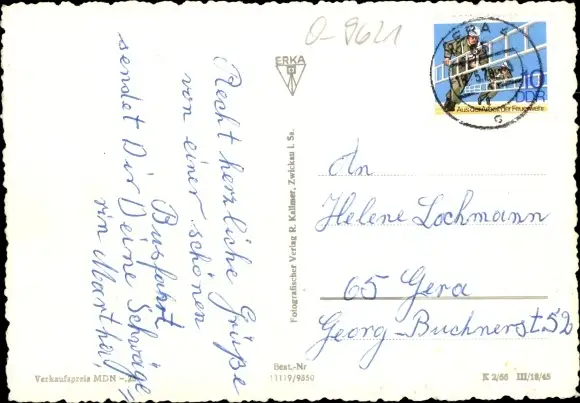 O-9621
Recht herzliche Grüße
von einer schönen
Busfahrt
sendet Dir Deine Schwäge=
rin Martha,
ERKA
Fotografischer Verlag R. Kallmer, Zwickau i. Sa.
GERA 4
10
DDR
Aus der Arbeit der Feuerwehr
c
An
Helene Lochmann
65 Gera
Georg-Buchnerst 52
Verkaufspreis MDN -,20
Best.-Nr
11119/9850
K 2/66 III/18/45